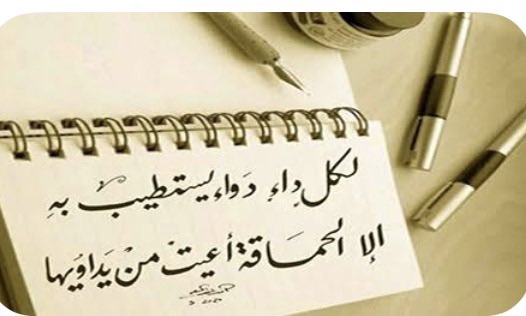 لكل داء دواء يستطيب به
إلا الحماقة أعيت من يداويها